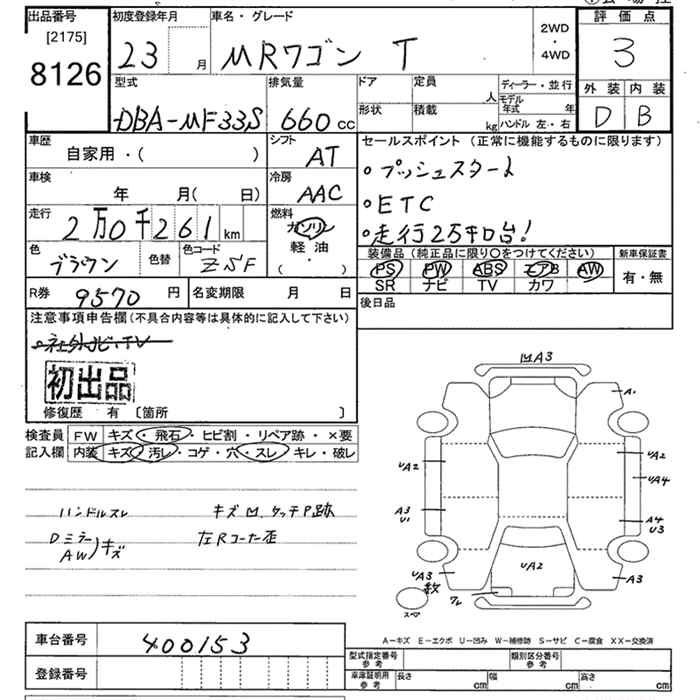 出品番号
[2175]
8126
初度登録年月
23 月
車名・グレード
MRワゴン T
2WD
・
4WD
評価点
3
外装 内装
D B
型式
DBA-MF33S
排気量
660 cc
ドア
定員
人
形状
積載
kg
ディーラー・並行
モデル年式 年
ハンドル 左・右
車歴
自家用・( )
シフト
AT
車検
年 月( 日)
冷房
AAC
走行
2万0千261 km
燃料
ガソリン
軽油
( ・ )
色
ブラウン
色替
色コード
ZSF
セールスポイント(正常に機能するものに限ります)
・プッシュスタート
・ETC
・走行2万キロ台!
装備品(純正品に限り○をつけてください)
PS PW ABS エアB AW
SR ナビ TV カワ
新車保証書
有・無
R券 9570 円
名変期限 月 日
後日品
注意事項申告欄(不具合内容等は具体的に記入して下さい)
・社外ナビ・TV
初出品
修復歴 有 〔箇所 〕
検査員
記入欄
FW キズ・飛石・ヒビ割・リペア跡・×要
内装 キズ・汚レ・コゲ・穴・スレ・キレ・破レ
ハンドルスレ
キズ凹、タッチP跡
Dミラー
AW )キズ
左Rコーナー歪
凹A3
A・
UA2
UA2
UA4
A3
U1
A4
U3
UA3
UA2
A3
ワレ
スペ
A-キズ E-エクボ U-凹み W-補修跡 S-サビ C-腐食 XX-交換済
車台番号 400153
登録番号
型式指定番号
参考
類別区分番号
参考
車庫証明用
参考
長さ cm
幅 cm
高さ cm